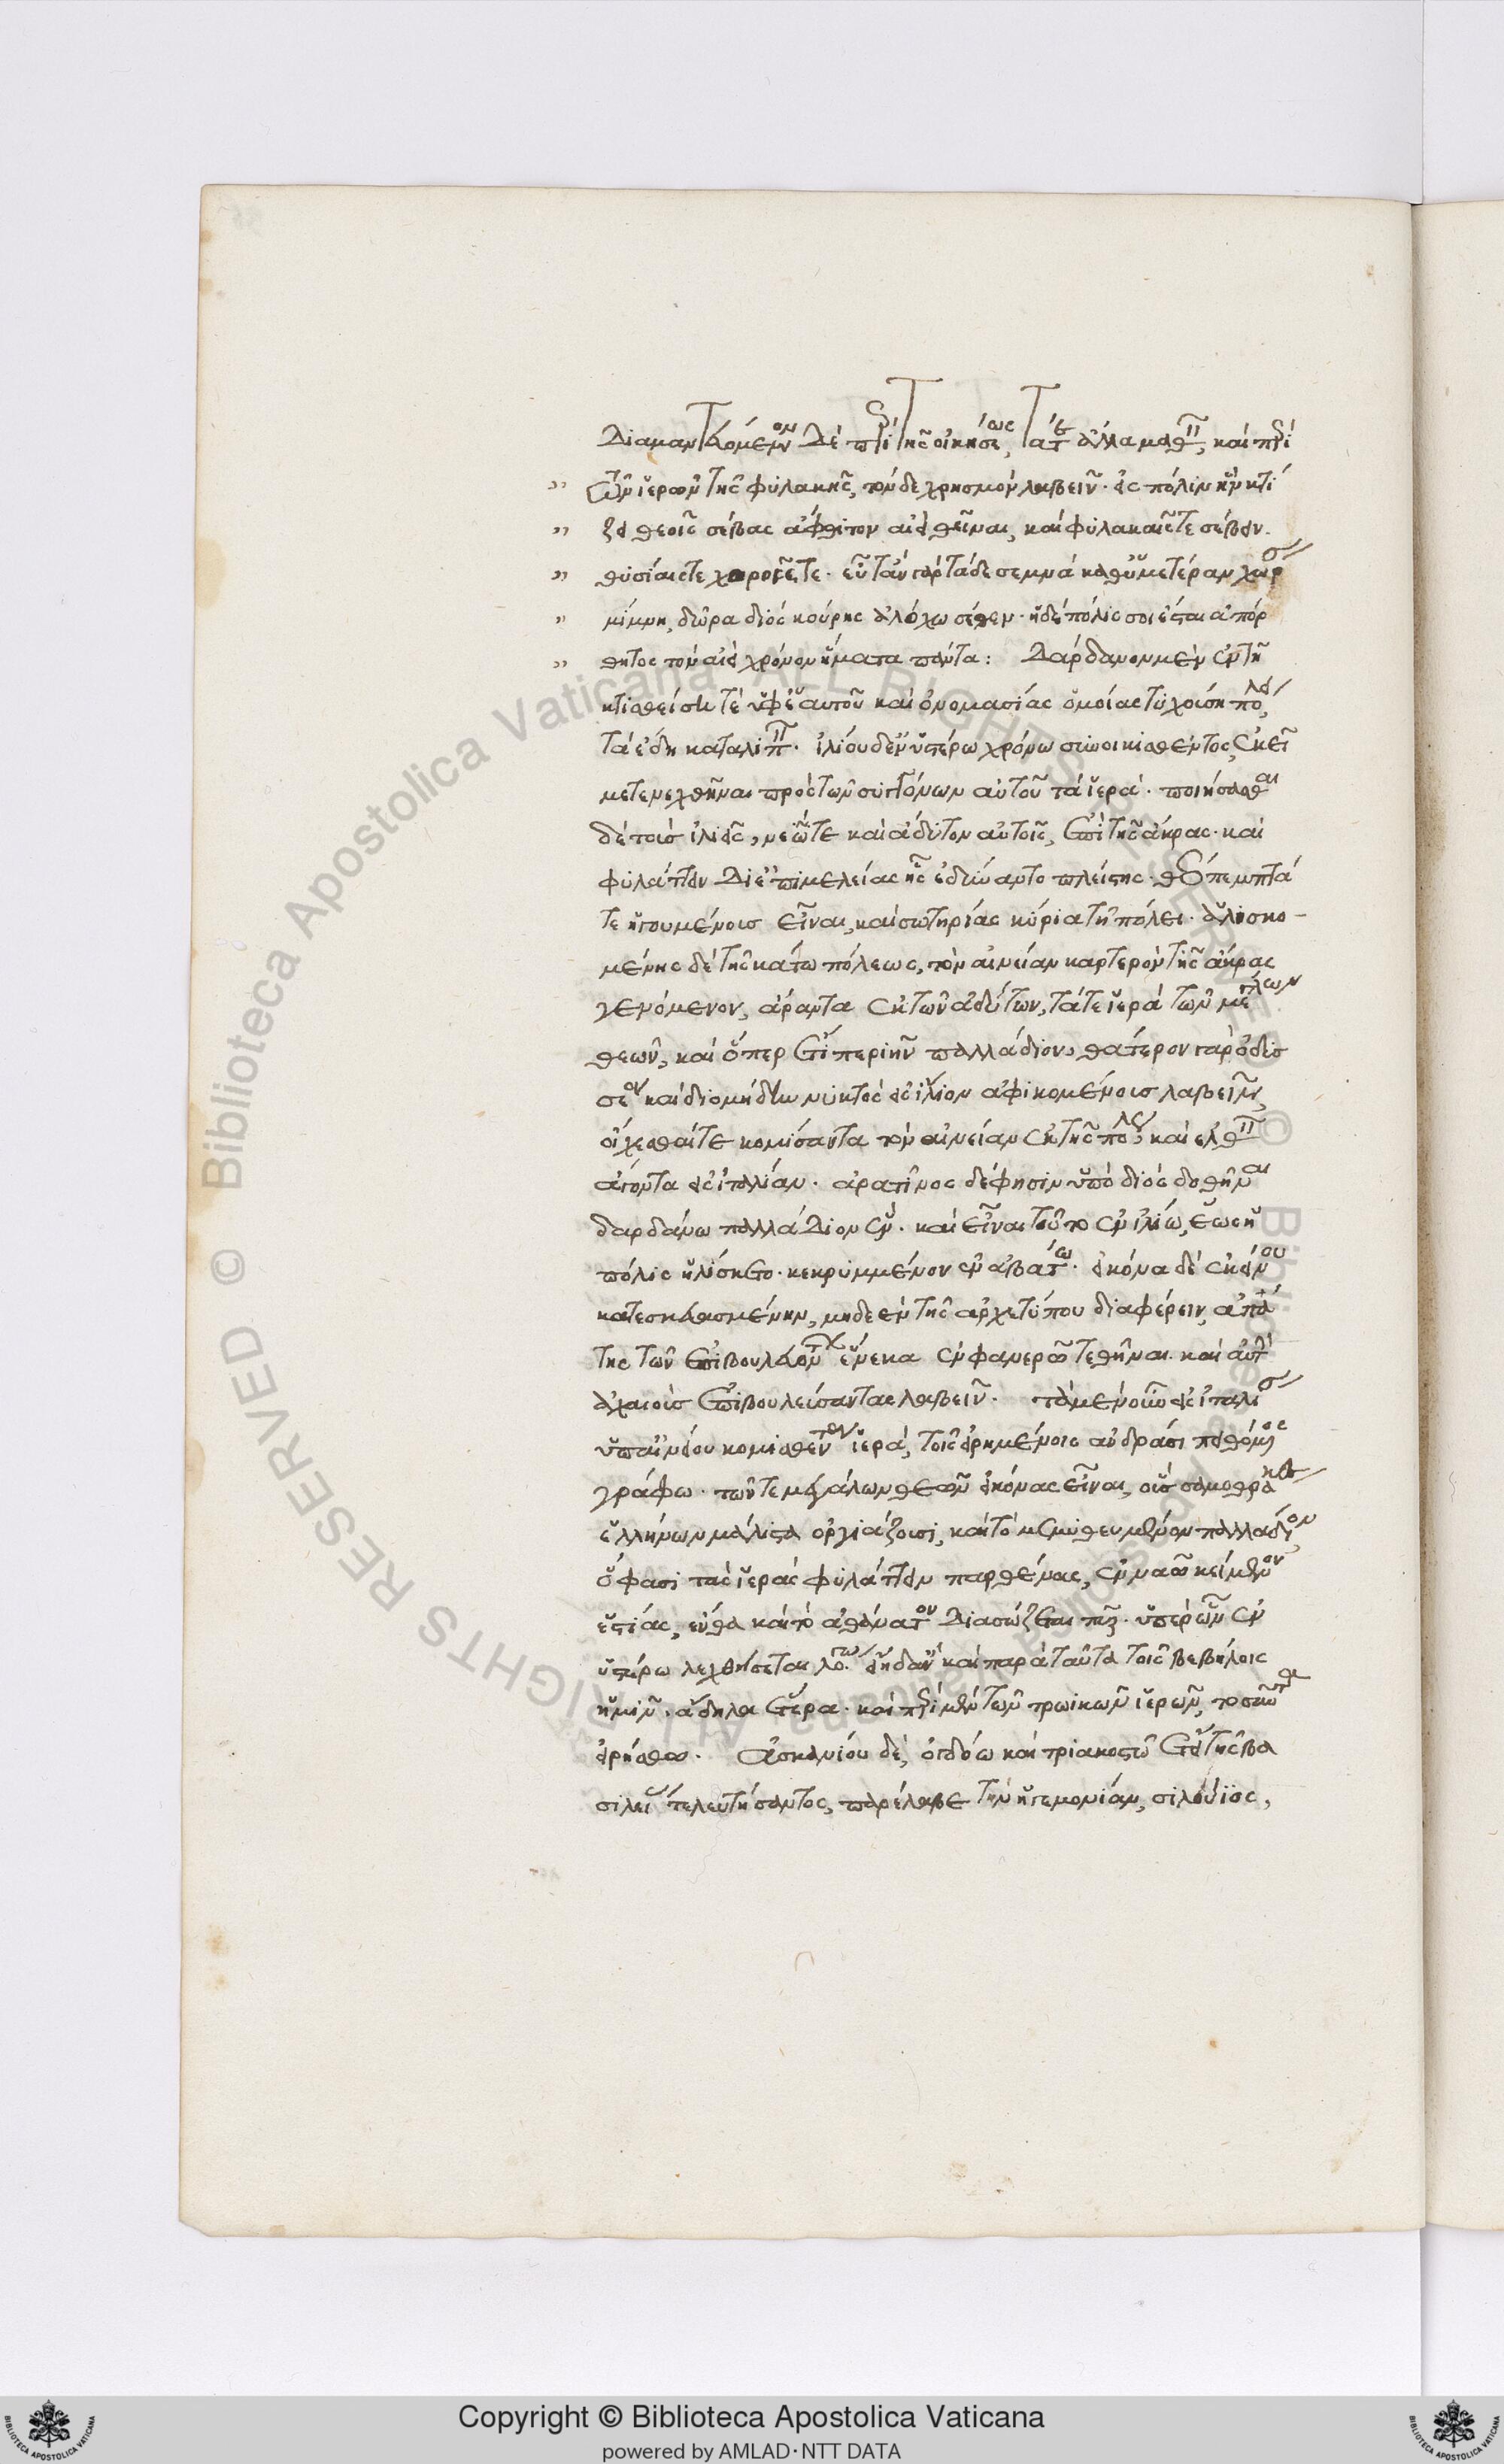 Διαμαντευόμενον δὲ περὶ τῆς οἰκήσεως, τά τε ἄλλα μαθεῖν, καὶ περὶ
τῶν ἱερῶν τῆς φυλακῆς, τόνδε χρησμὸν λαβεῖν. εἰς πόλιν ἣν κτί
ζῃ θεοῖς σέβας ἄφθιτον αἰεὶ θεῖναι, καὶ φυλακαῖς τε σέβειν.
θυσίαις τε χοροῖς τε. εὖτ' ἂν γὰρ τάδε σεμνὰ καθ' ὑμετέραν χώρας
μίμνῃ, δῶρα διὸς κούρης ἀλόχω σέθεν. ἡ δὲ πόλις σοι ἔσται ἀπόρ
θητος τὸν αἰεὶ χρόνον ἤματα πάντα: Δάρδανον μὲν ἐν τῇ
κτισθείσῃ τὲ ὑφ' ἑαυτοῦ καὶ ὀνομασίας ὁμοίας τυχούσῃ πόλει,
τὰ ἕδη καταλιπεῖν. ἰλίου δ' ἐν ὑστέρω χρόνω συνοικισθέντος, ἐκεῖ
μετενεχθῆναι πρὸς τῶν ἐγγόνων αὐτοῦ τὰ ἱερά. ποιήσασθαι
δὲ τοὺς ἰλιεῖς, νεών τε καὶ ἄδυτον αὐτοῖς, ἐπὶ τῆς ἄκρας. καὶ
φυλάττειν δι' ἐπιμελείας ἧς ἐδύναντο πλείστης. θεόπεμπτά
τε ἡγουμένους εἶναι, καὶ σωτηρίας κύρια τῇ πόλει. ἁλισκο-
μένης δὲ τῆς κάτω πόλεως, τὸν αἰνείαν καρτερὸν τῆς ἄκρας
γενόμενον, ἄραντα ἐκ τῶν ἀδύτων, τά τε ἱερὰ τῶν μεγάλων
θεῶν, καὶ ὅπερ ἔτι περιῆν παλλάδιον, θάτερον γὰρ ὀδυσ
σέα καὶ διομήδην νυκτὸς εἰς ἴλιον ἀφικομένους λαβεῖν,
οἴχεσθαί τε κομίσαντα τὸν αἰνείαν ἐκ τῆς πόλεως καὶ ἐλθεῖν
ἄγοντα εἰς ἰταλίαν. ἀρκτῖνος δέ φησιν ὑπὸ διὸς δοθῆναι
δαρδάνω παλλάδιον ἕν. καὶ εἶναι τοῦτο ἐν ἰλίω, ἕως ἡ
πόλις ἡλίσκετο. κεκρυμμένον ἐν ἀβάτω. εἰκόνα δὲ ἐκείνου
κατεσκευασμένην, μηδὲ ἓν τῆς ἀρχετύπου διαφέρειν, ἀπά
της τῶν ἐπιβουλευόντων ἕνεκα ἐν φανερῶ τεθῆναι. καὶ αὐτὴν
ἀχαιοὺς ἐπιβουλεύσαντας λαβεῖν. τὰ μὲν οὖν εἰς ἰταλίαν
ὑπ' αἰνείου κομισθέντα ἱερά, τοῖς εἰρημένοις ἀνδράσι πειθόμενος
γράφω. τῶν τε μεγάλων θεῶν εἰκόνας εἶναι, οὓς σαμοθρᾷκες
ἑλλήνων μάλιστα ὀργιάζουσι, καὶ τὸ μεμυθευμένον παλλάδιον,
ὅ φασι τὰς ἱερὰς φυλάττειν παρθένας, ἐν ναῶ κείμενον
ἑστίας, ἔνθα καὶ τὸ ἀθάνατον διασώζεται πῦρ. ὑπὲρ ὧν ἐν
ὑστέρω λεχθήσεται λόγω. εἴη δ' ἂν καὶ παρὰ ταῦτα τοῖς βεβήλοις
ἡμῖν. ἄδηλα ἕτερα. καὶ περὶ μὲν τῶν τρωικῶν ἱερῶν, τοσαῦτα
εἰρήσθω. Ἀσκανίου δὲ, ὀγδόω καὶ τριακοστῶ ἔτει τῆς βα
σιλείας τελευτήσαντος, παρέλαβε τὴν ἡγεμονίαν, σιλούϊος,
Copyright © Biblioteca Apostolica Vaticana
powered by AMLAD·NTT DATA